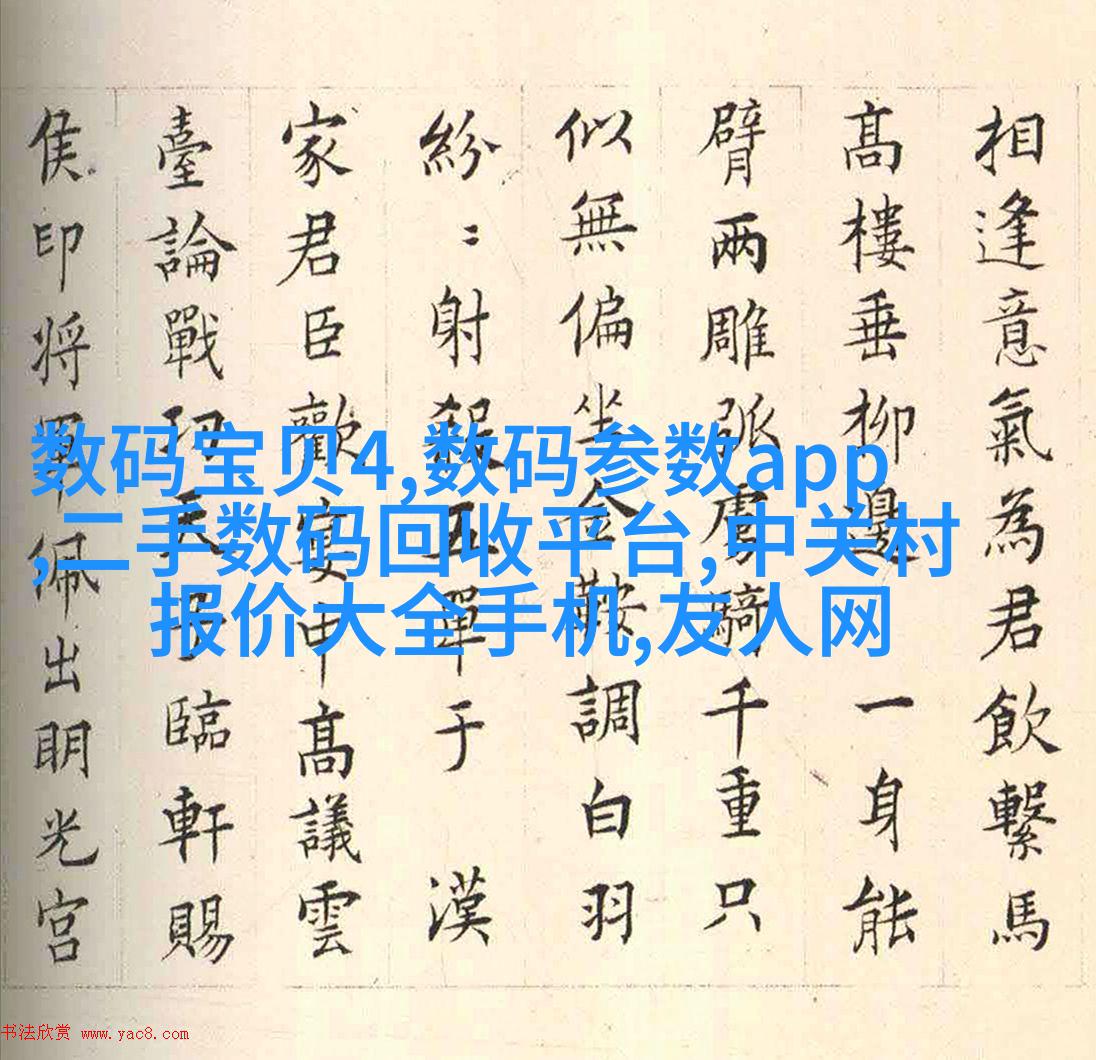 相逢意氣為君飲繫馬
髙樓垂柳邊一身能
臂兩雕弧虜騎千重只
似無偏坐金鞍調白羽
紛〻射殺五單于 漢
家君臣歡宴中髙議雲
臺論戰功天子臨軒賜
侯印将軍佩出明光宮
数码宝贝4,数码参数app
,二手数码回收平台,中关村
报价大全手机,友人网
书法欣赏 www.yac8.com